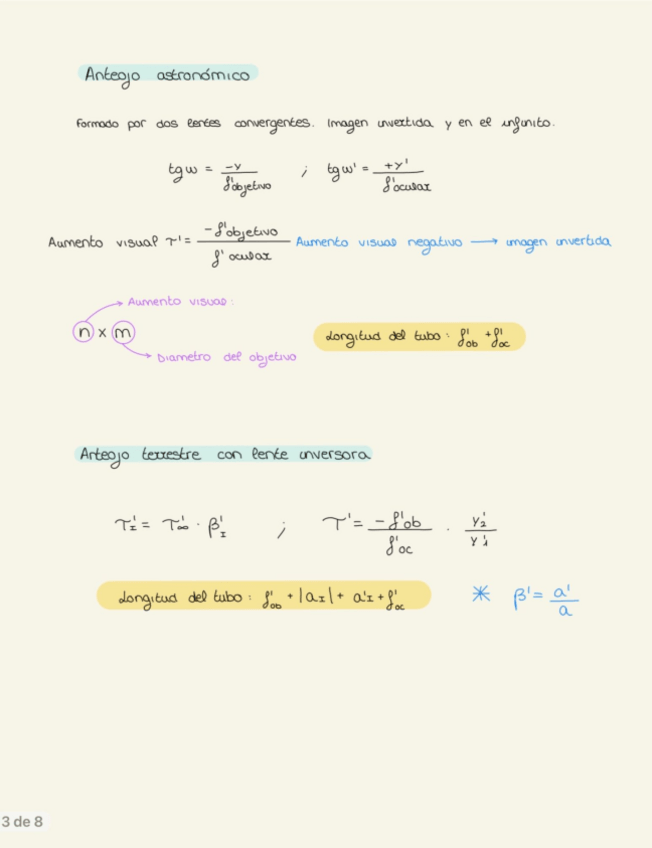 Anteojo astronómico
Formado por dos lentes convergentes. Imagen invertida y en el infinito.
tg w = -y / f'objetivo ; tg w' = +y' / f'ocular
Aumento visual Τ' = -f'objetivo / f' ocular Aumento visual negativo → imagen invertida
Aumento visual:
n x m
Diametro del objetivo
Longitud del tubo: f'ob + f'oc
Anteojo terrestre con lente inversora
Τ'I = Τ'∞ · β'I ; Τ' = -f'ob / f'oc · y'2 / y'1
Longitud del tubo: f'ob + |aI| + a'I + f'oc * β' = a' / a
3 de 8